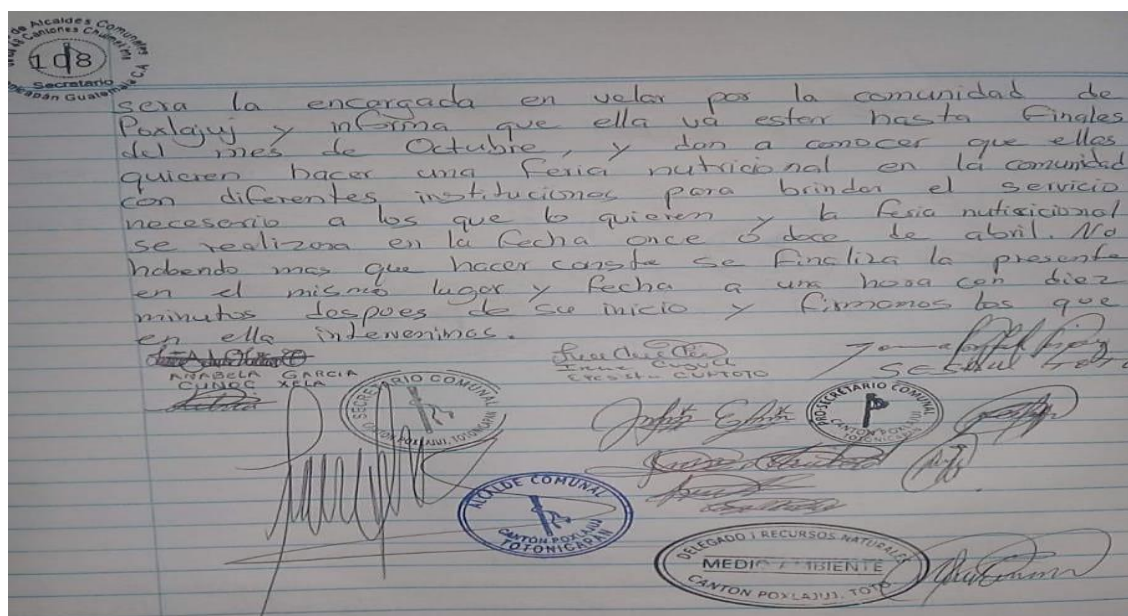 de Alcaldes Comunales
108
Secretario
sera la encargada en velar por la comunidad de
Poxlajuj y informa que ella va ester hasta Finales
del mes de Octubre, y dan a conocer que ellos
quieren hacer una feria nutricional en la comunidad
con diferentes instituciones para brindar el servicio
necesario a los que lo quieren y la feria nutiricional
se realizara en la fecha once ó doce de abril. No
habendo mas que hacer consta se finaliza la presente
en el mismo lugar y fecha a una hora con diez
minutos despues de su inicio y firmamos los que
en ella intervenimos.
ANABELA GARCIA
CUNOC XELA
SECRETARIO COMUNAL
CANTON POXLAJUJ, TOTONICAPAN
PRO-SECRETARIO COMUNAL
ALCALDE COMUNAL
CANTÓN POXLAJUJ
TOTONICAPÁN
DELEGADO I RECURSOS NATURALES
MEDIO AMBIENTE
CANTON POXLAJUJ, TOTO